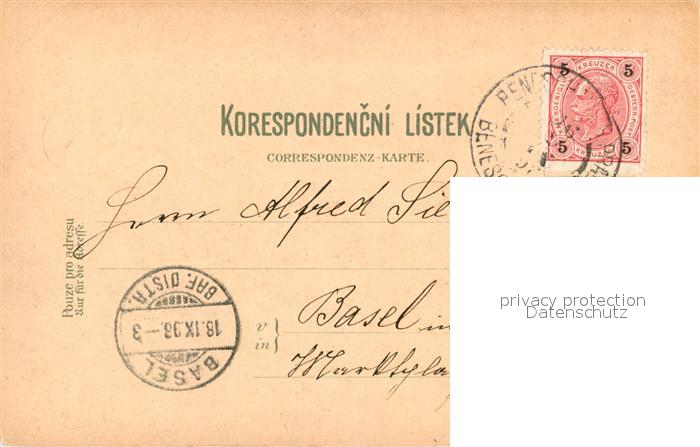 5 KREUZER 5
5 KREUZER 5
KORESPONDENČNÍ LÍSTEK
CORRESPONDENZ-KARTE.
BENESCHAU
Herrn Alfred Sie
Pouze pro adresu
Nur für die Adresse.
BASEL
18.IX.98.–3
BRF. DISTR.
v
in
Basel in
Marktpla
privacy protection
Datenschutz